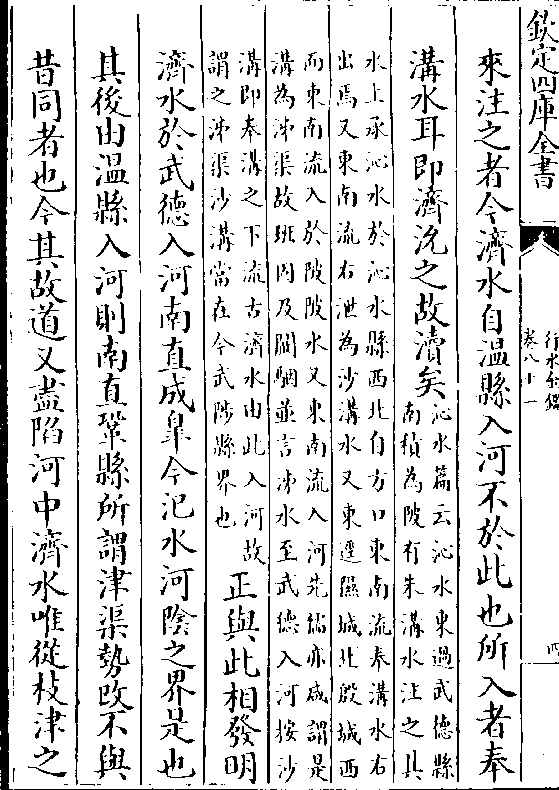 欽定四庫全書
行水金鑑
卷八十一
四
來注之者今濟水自溫縣入河不於此也所入者奉
溝水耳即濟沇之故瀆矣
沁水篇云沁水東過武德縣
南積為陂有朱溝水注之其
水上承沁水於沁水縣西北自方口東南流奉溝水右
出焉又東南流右泄為沙溝水又東逕隰城北殷城西
而東南流入於陂陂水又東南流入河先儒亦咸謂是
溝為泲渠故班固及闞駰並言泲水至武德入河按沙
溝即奉溝之下流古濟水由此入河故
謂之泲渠沙溝當在今武陟縣界也
正與此相發明
濟水於武德入河南直成臯今汜水河陰之界是也
其後由溫縣入河則南直鞏縣所謂津渠勢改不與
昔同者也今其故道又盡陷河中濟水唯從枝津之